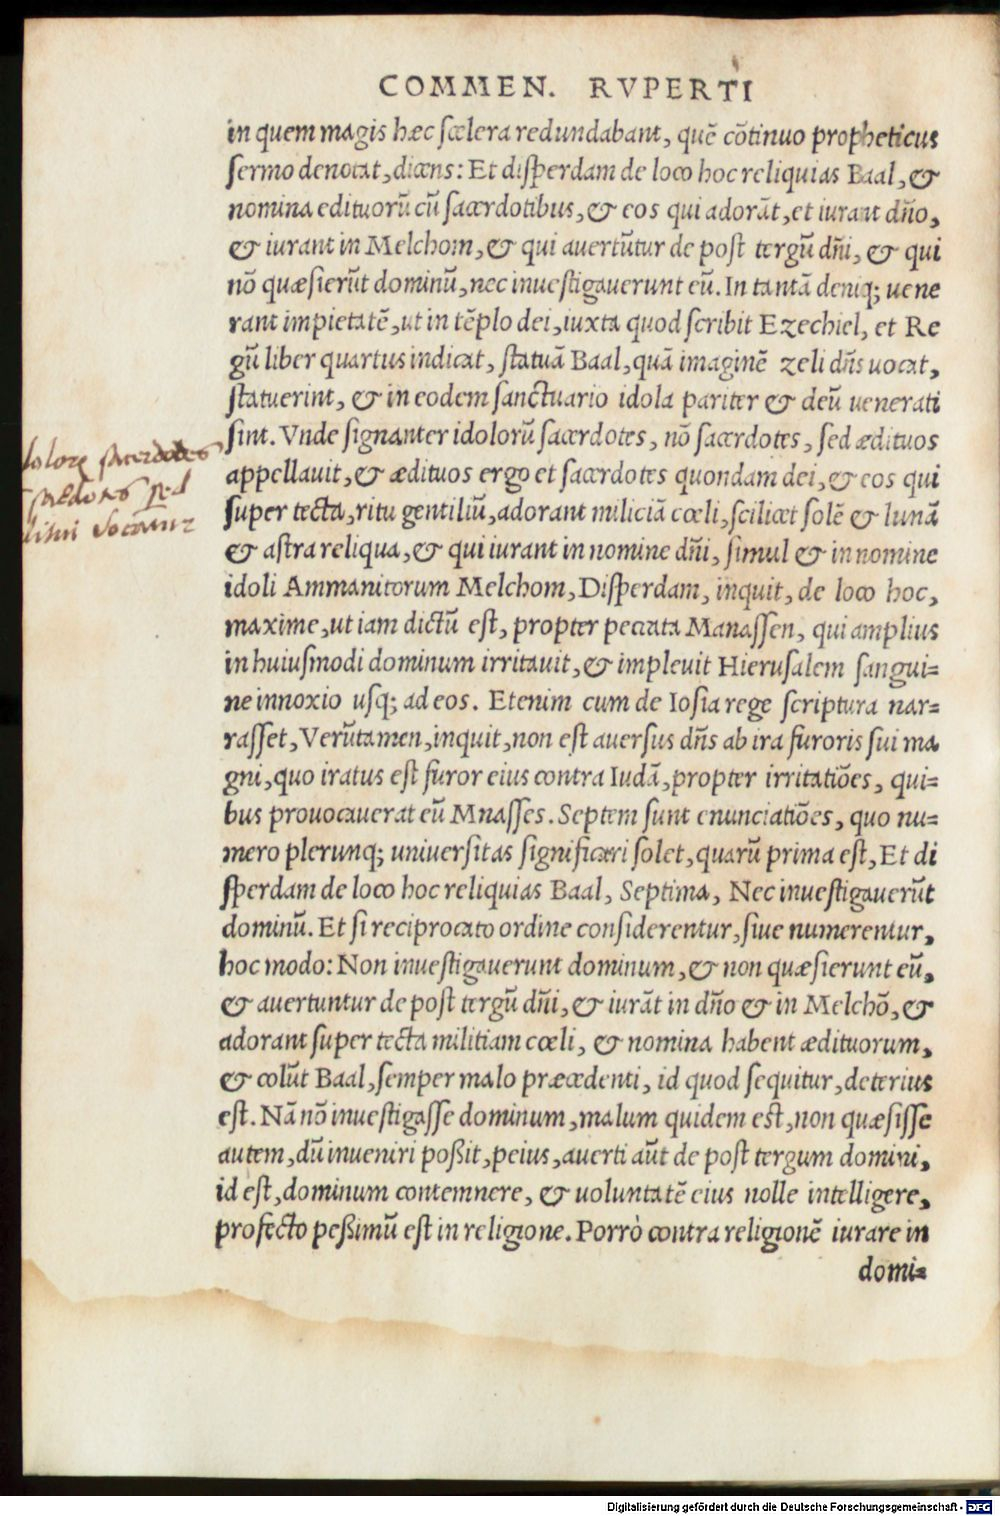 COMMEN. RVPERTI
in quem magis hæc scelera redundabant, quē cōtinuo propheticus
sermo denotat, dicens: Et disperdam de loco hoc reliquias Baal, &
nomina edituorū cū sacerdotibus, & eos qui adorāt, et iurant dño,
& iurant in Melchom, & qui avertūtur de post tergū dñi, & qui
nō quæsierūt dominū, nec investigaverunt eū. In tantā deniq; vene
rant impietatē, ut in tēplo dei, iuxta quod scribit Ezechiel, et Re
gū liber quartus indicat, statuā Baal, quā imaginē zeli dñs vocat,
statuerint, & in eodem sanctuario idola pariter & deū venerati
sint. Vnde signanter idolorū sacerdotes, nō sacerdotes, sed ædituos
appellauit, & ædituos ergo et sacerdotes quondam dei, & eos qui
super tecta, ritu gentiliū, adorant miliciā cœli, scilicet solē & lunā
& astra reliqua, & qui iurant in nomine dñi, simul & in nomine
idoli Ammanitorum Melchom, Disperdam, inquit, de loco hoc,
maxime, ut iam dictū est, propter peccata Manassen, qui amplius
in huiusmodi dominum irritavit, & implevit Hierusalem sangui=
ne innoxio usq; ad eos. Etenim cum de Iosia rege scriptura nar=
rasset, Verūtamen, inquit, non est aversus dñs ab ira furoris sui ma
gni, quo iratus est furor eius contra Iudā, propter irritatiōes, qui=
bus provocaverat eū Mnasses. Septem sunt enunciatiōes, quo nu=
mero plerunq; universitas significari solet, quarū prima est, Et di
sperdam de loco hoc reliquias Baal, Septima, Nec investigaverūt
dominū. Et si reciprocato ordine considerentur, sive numerentur,
hoc modo: Non investigaverunt dominum, & non quæsierunt eū,
& avertuntur de post tergū dñi, & iurāt in dño & in Melchō, &
adorant super tecta militiam cœli, & nomina habent ædituorum,
& colūt Baal, semper malo præcedenti, id quod sequitur, deterius
est. Nā nō investigasse dominum, malum quidem est, non quæsisse
autem, dū inveniri poßit, peius, averti aūt de post tergum domini,
id est, dominum contemnere, & voluntatē eius nolle intelligere,
profecto peßimū est in religione. Porrò contra religionē iurare in
domi=
sacerdotes
sed
Digitalisierung gefördert durch die Deutsche Forschungsgemeinschaft - DFG